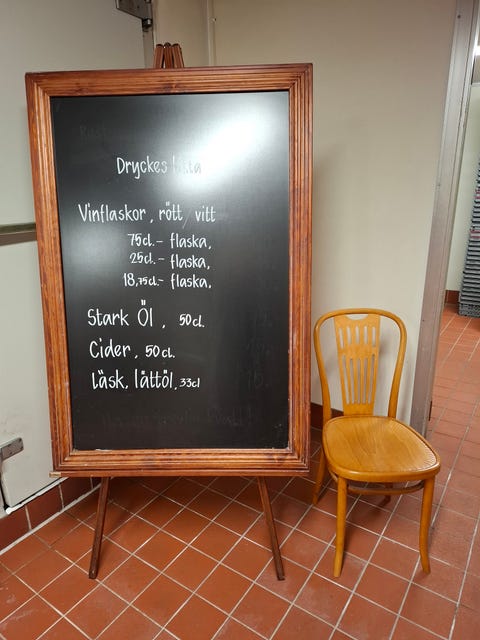 Dryckes lista
Vinflaskor, rött/vitt
75cl.- flaska,
25cl.- flaska,
18,75cl.- flaska,
Stark Öl, 50cl.
Cider, 50cl.
läsk, lättöl, 33cl